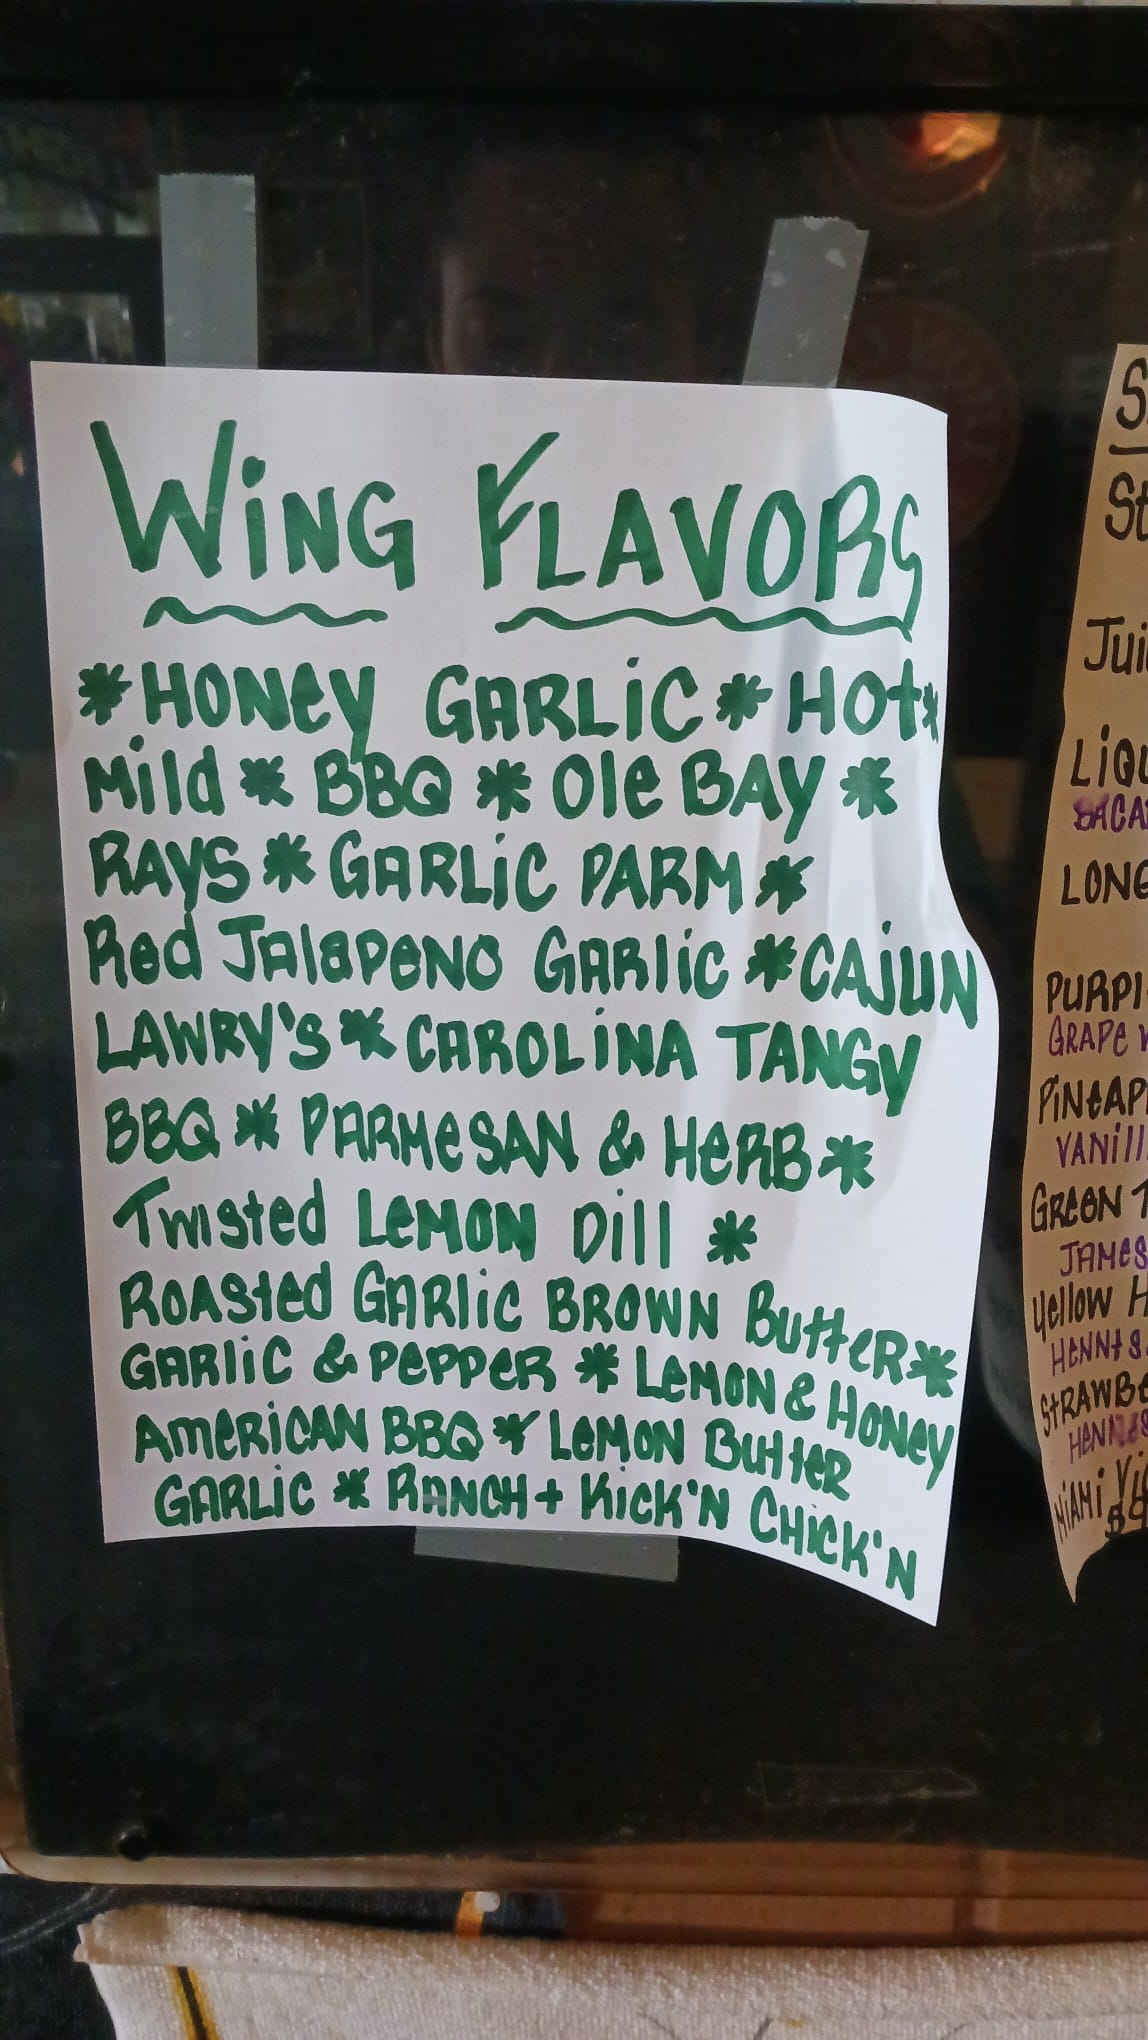 WiNG FLAVORS
*HONey GARLiC * HOt*
Mild * BBQ * Ole BAY *
RAYS * GARLiC PARM *
Red JAlaPeNO GARliC *CAJUN
LAWRY'S * CAROLiNA TANGY
BBQ * PARMeSAN & HeRB *
Twisted LeMON Dill *
ROASted GARLiC BROWN ButteR*
GARliC & PePPeR * LeMON & HONey
AMeRiCAN BBQ * LeMON ButteR
GARLiC * RANCH + KiCK'N CHiCK'N
St
Jui
LiQu
BACA
LONG
PURPL
GRAPe
PiNeAP
VANill
GReeN T
JAMeS
Yellow H
HeNNeS
StRAWBe
HeNNeS
MiAMi Vi